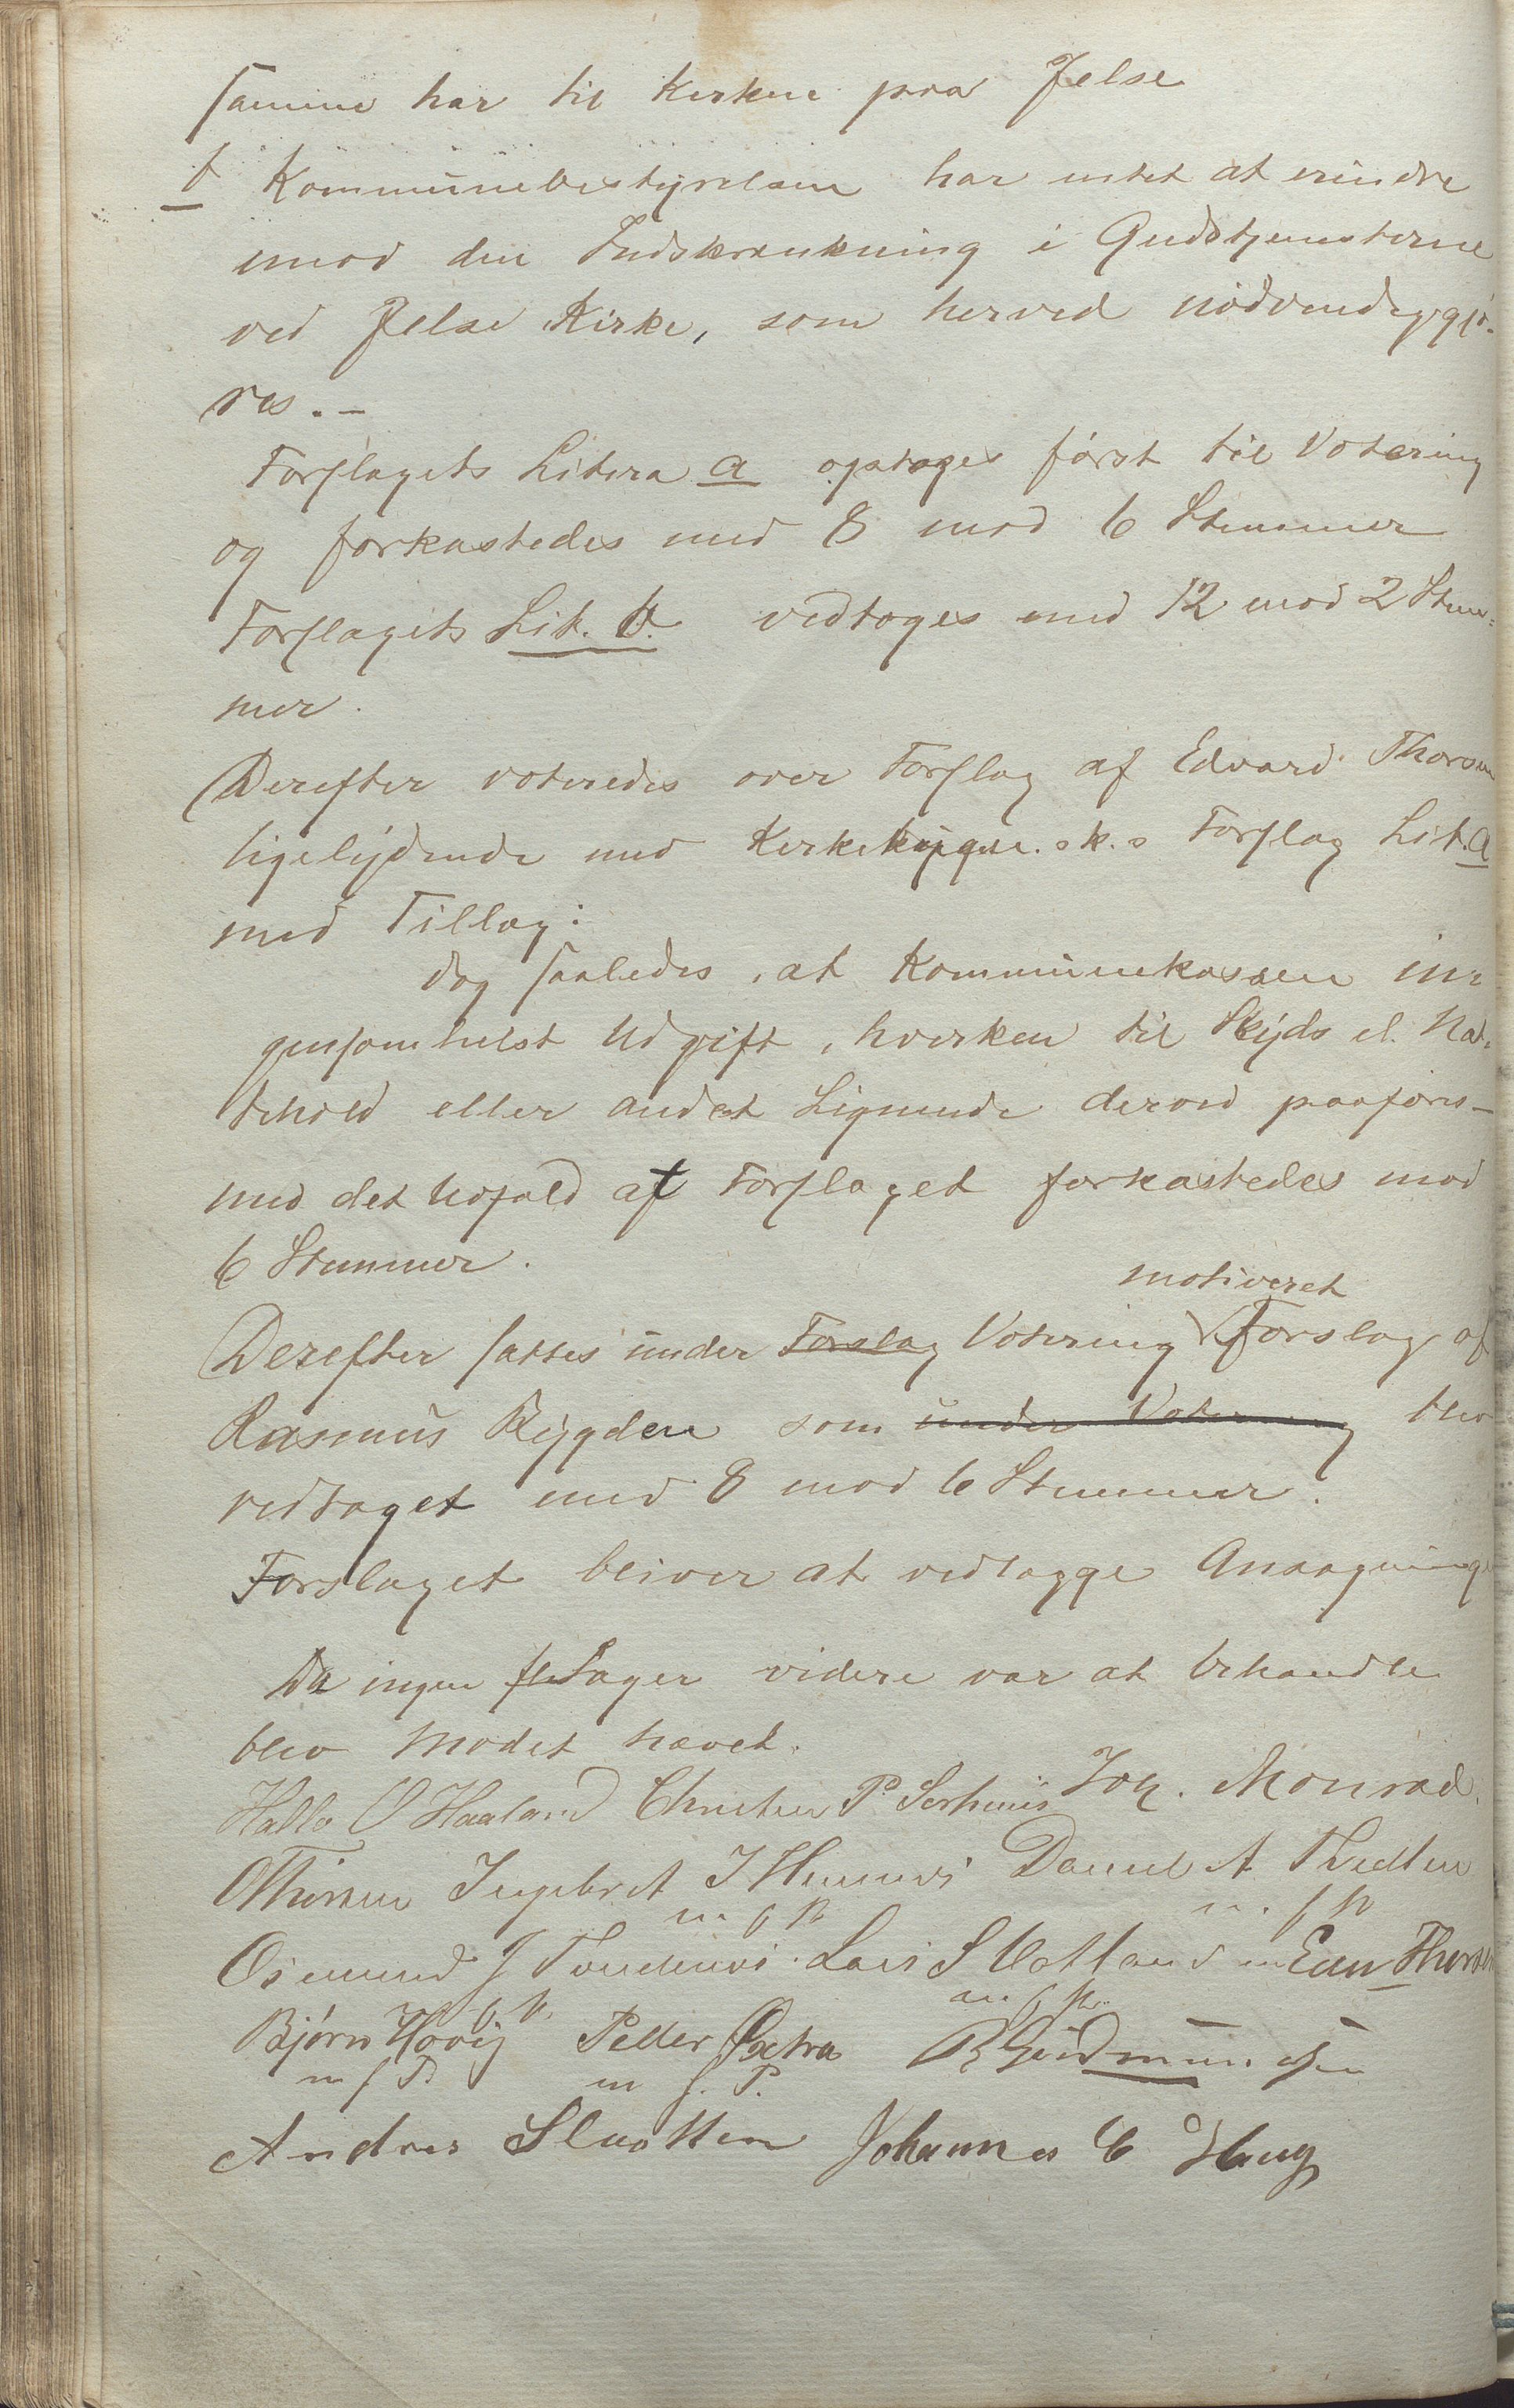 samme har til Kirken paa Jelse
b Kommunebestyrelsen har intet at erindre
imod den Indskrænkning i Gudstjenesterne
ved Jelse Kirke, som herved nødvendiggjø-
res. -
Forslagets Litera a optoges først til Votering
og forkastedes med 8 mod 6 Stemmer
Forslagets Lit. b. vedtoges med 12 mod 2 Stem-
mer.
Derefter voteredes over Forslag af Edvard Thorsen
ligelydende med Forslag Lit. a
med Tillæg:
dog saaledes, at Kommunekassen in-
gensomhelst Udgift, hverken til Skyds el. Nat-
tehold eller andet Lignende derved paaføres -
med det Udfald at Forslaget forkastedes mod
6 Stemmer.
motiveret
Derefter sattes under Forslag Votering Forslag af
Rasmus Rygden som under Votering blev
vedtaget med 8 mod 6 Stemmer.
Forslaget bliver at vedlægge Ansøgning
Da ingen Sager videre var at behandle
blev Mødet hævet.
O Haaland P. Joh. Monrad.
Ingebret Daniel A.
m f P m. f P
Osmund J Lars S m Edv Thorsen
f P. m f P.
Bjørn Hovig Peder B Gudmundsen
m f P m f. P.
Andres Slaatten Johannes C Haug